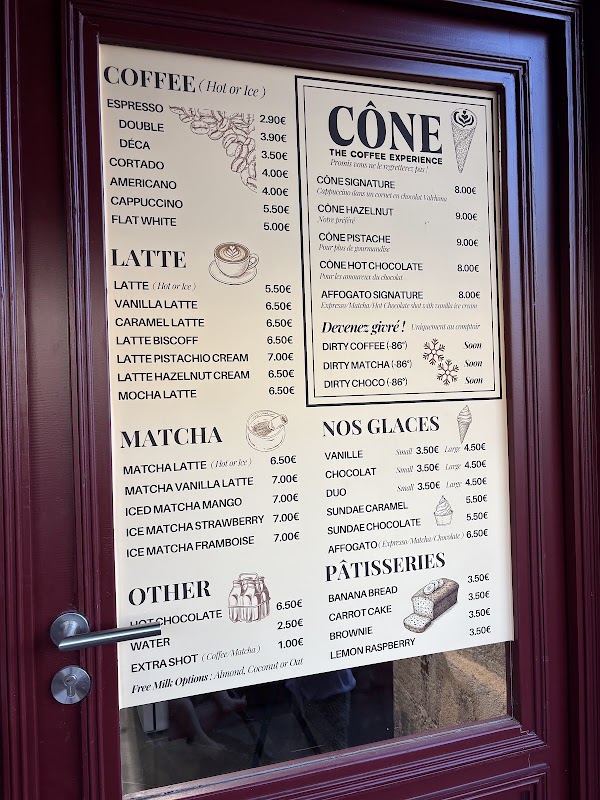 COFFEE (Hot or Ice)
ESPRESSO 2.90€
DOUBLE 3.90€
DÉCA 3.50€
CORTADO 4.00€
AMERICANO 4.00€
CAPPUCCINO 5.50€
FLAT WHITE 5.00€
LATTE
LATTE (Hot or Ice) 5.50€
VANILLA LATTE 6.50€
CARAMEL LATTE 6.50€
LATTE BISCOFF 6.50€
LATTE PISTACHIO CREAM 7.00€
LATTE HAZELNUT CREAM 6.50€
MOCHA LATTE 6.50€
MATCHA
MATCHA LATTE (Hot or Ice) 6.50€
MATCHA VANILLA LATTE 7.00€
ICED MATCHA MANGO 7.00€
ICE MATCHA STRAWBERRY 7.00€
ICE MATCHA FRAMBOISE 7.00€
OTHER
HOT CHOCOLATE 6.50€
WATER 2.50€
EXTRA SHOT (Coffee/Matcha) 1.00€
Free Milk Options : Almond, Coconut or Oat
CÔNE
THE COFFEE EXPERIENCE
Promis vous ne le regretterez pas !
CÔNE SIGNATURE 8.00€
Cappuccino dans un cornet en chocolat Valrhona
CÔNE HAZELNUT 9.00€
Notre préféré
CÔNE PISTACHE 9.00€
Pour plus de gourmandise
CÔNE HOT CHOCOLATE 8.00€
Pour les amoureux du chocolat
AFFOGATO SIGNATURE 8.00€
Expresso/Matcha/Hot Chocolate shot with vanilla ice cream
Devenez givré ! Uniquement au comptoir
DIRTY COFFEE (-86°) Soon
DIRTY MATCHA (-86°) Soon
DIRTY CHOCO (-86°) Soon
NOS GLACES
VANILLE Small 3.50€ Large 4.50€
CHOCOLAT Small 3.50€ Large 4.50€
DUO Small 3.50€ Large 4.50€
SUNDAE CARAMEL 5.50€
SUNDAE CHOCOLATE 5.50€
AFFOGATO (Expresso/Matcha/Chocolate) 6.50€
PÂTISSERIES
BANANA BREAD 3.50€
CARROT CAKE 3.50€
BROWNIE 3.50€
LEMON RASPBERRY 3.50€